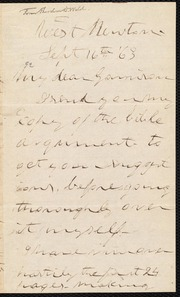 West Newton
Sept 16th '63
My dear Garrison
I send you my
copy of the bible
arguments to
get your sugges-
tions, before going
thoroughly over
it myself.
I have
hastily the part 24
pages making